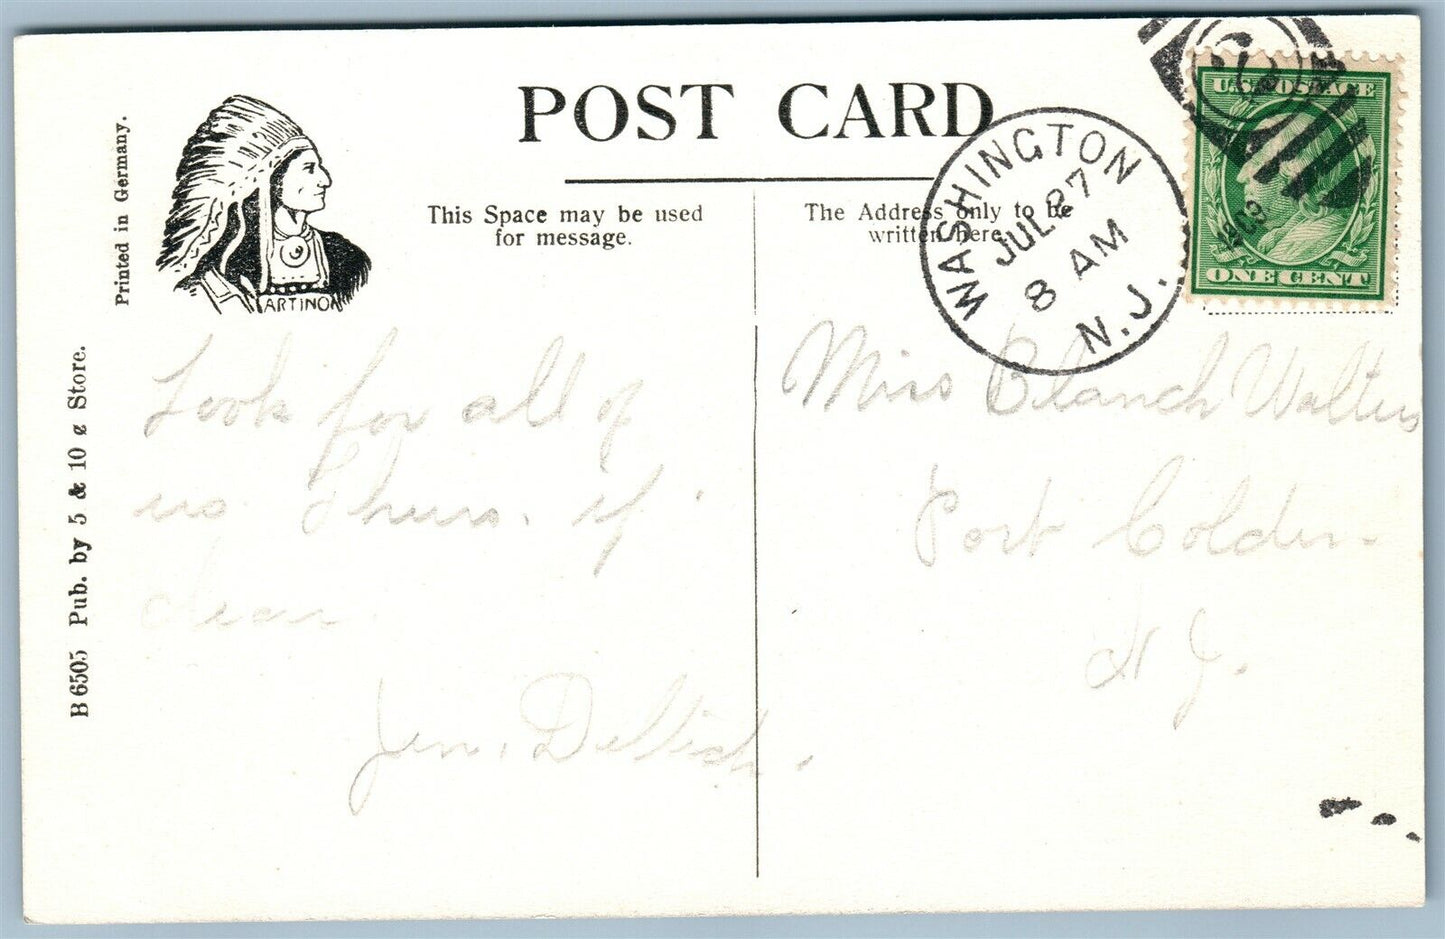 POST CARD
Printed in Germany.
ARTINO
This Space may be used
for message.
The Address only to be
written here.
WASHINGTON
JUL 27
8 AM
N.J.
U.S. POSTAGE
ONE CENT
B 6505 Pub. by 5 & 10 ¢ Store.
Look for all of
us Thurs. if
clear
Jen.
Miss Blanch Walters
Port Colden.
N J.